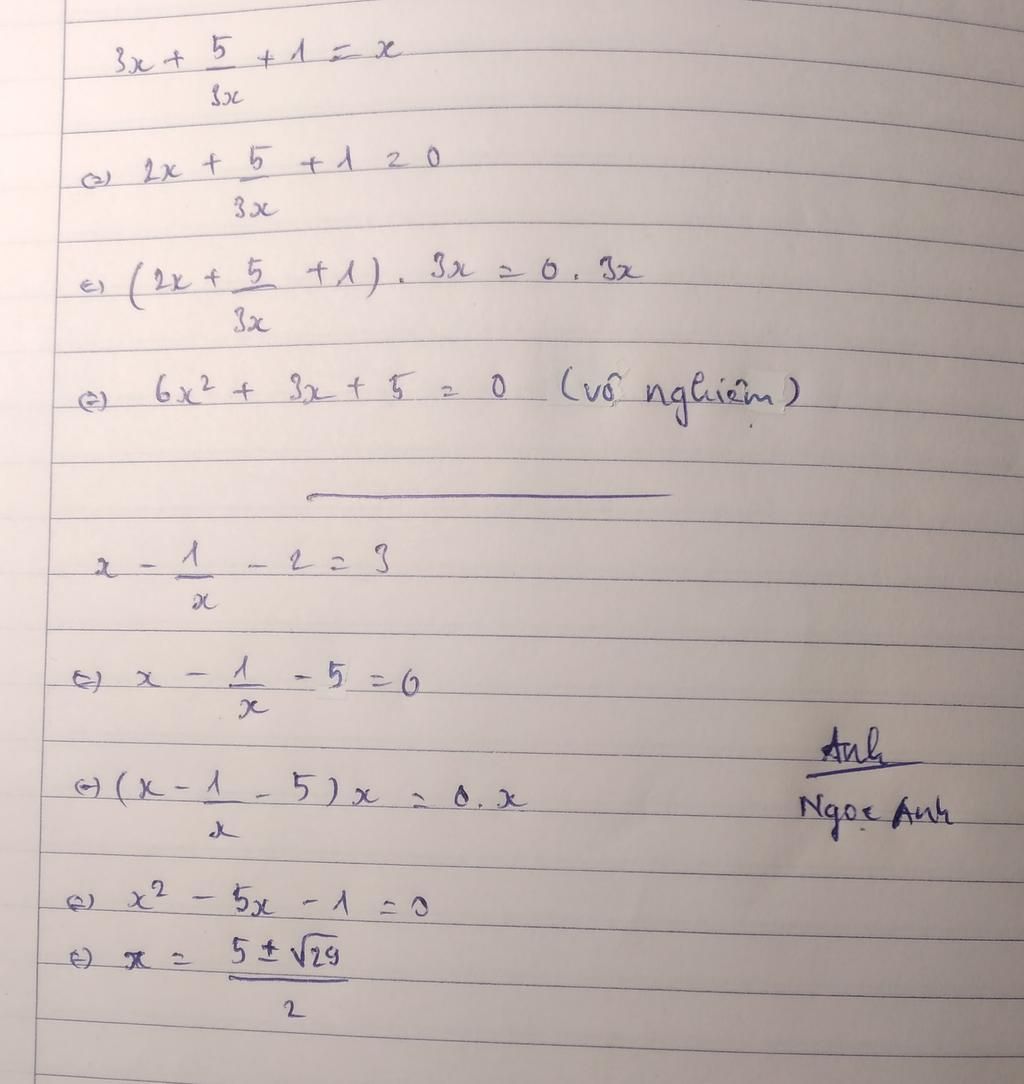 3x + 5/3x + 1 = x
⇔ 2x + 5/3x + 1 = 0
⇔ (2x + 5/3x + 1) . 3x = 0 . 3x
⇔ 6x² + 3x + 5 = 0 (vô nghiệm)
x - 1/x - 2 = 3
⇔ x - 1/x - 5 = 0
⇔ (x - 1/x - 5) x = 0 . x
⇔ x² - 5x - 1 = 0
⇔ x = (5 ± √29)/2
Anh
Ngọc Anh